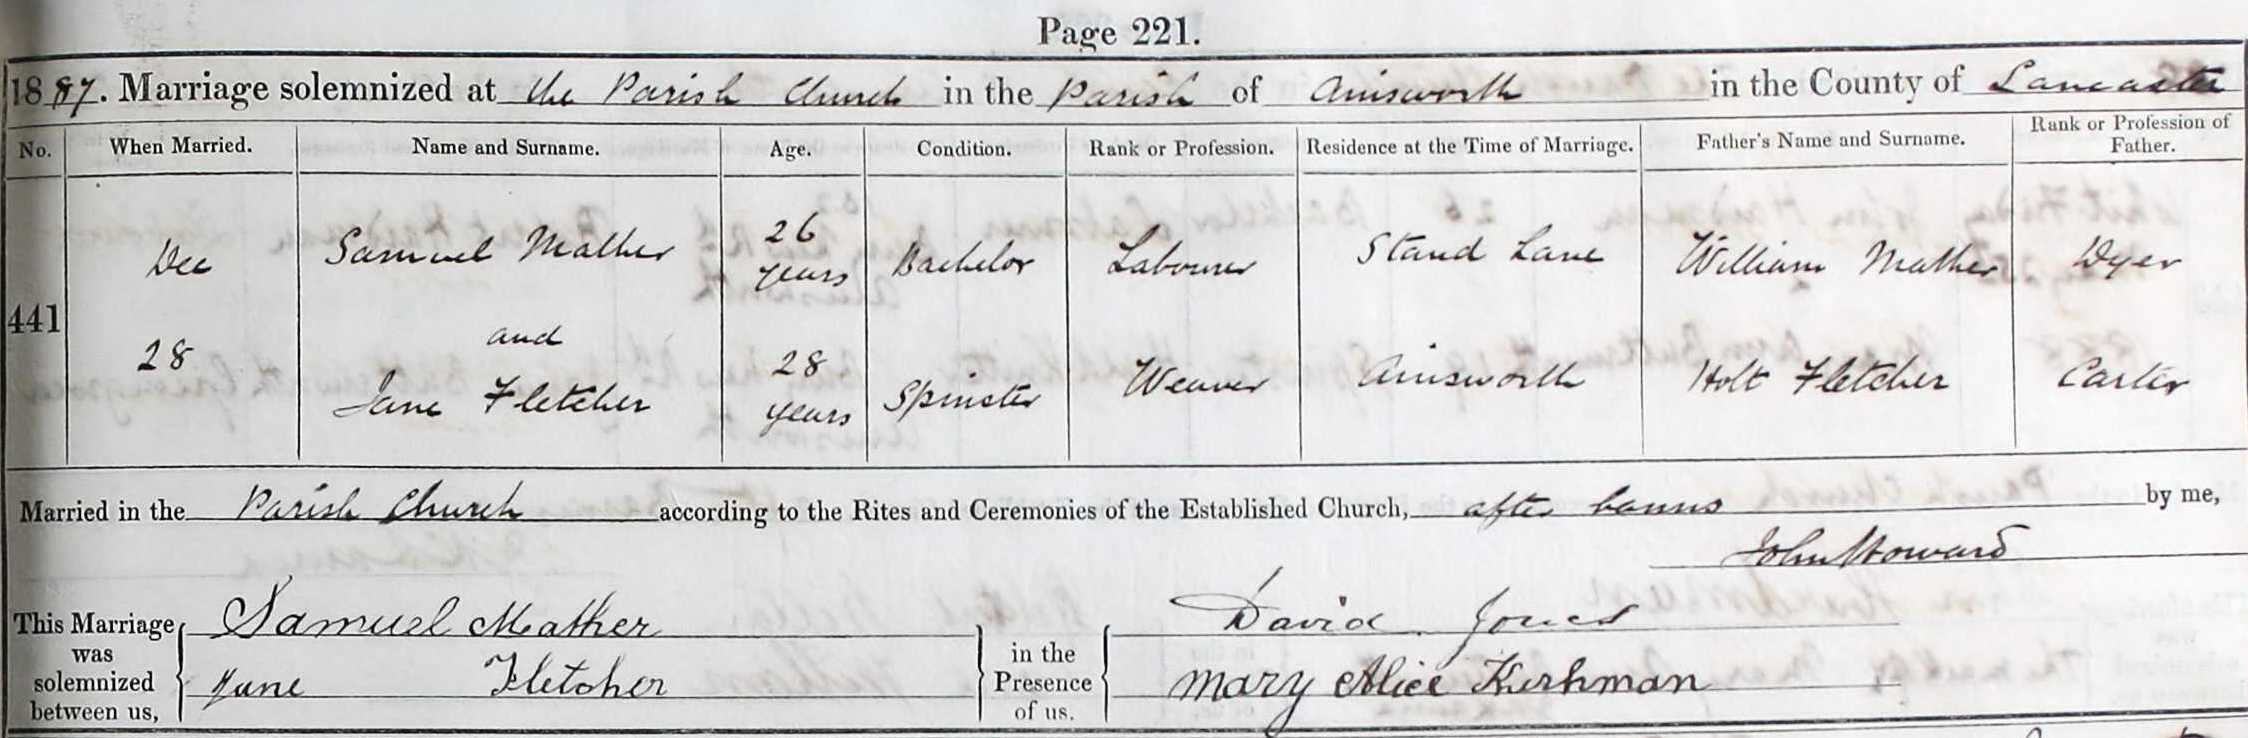 Page 221.
1887. Marriage solemnized at the Parish Church in the Parish of Ainsworth in the County of Lancaster
No. When Married. Name and Surname. Age. Condition. Rank or Profession. Residence at the Time of Marriage. Father's Name and Surname. Rank or Profession of Father.
441
Dec Samuel Mather 26 years Bachelor Labourer Stand Lane William Mather Dyer
and
28 Jane Fletcher 28 years Spinster Weaver Ainsworth Holt Fletcher Carter
Married in the Parish Church according to the Rites and Ceremonies of the Established Church, after banns by me,
John Howard
This Marriage was solemnized between us, Samuel Mather in the Presence of us. David Jones
Jane Fletcher Mary Alice Kirkman